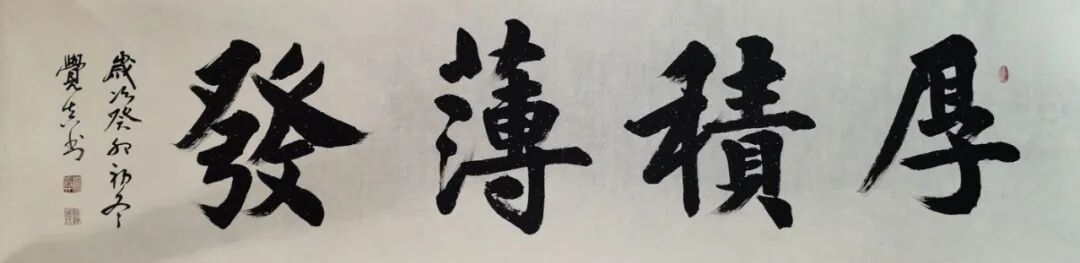 厚積薄發
歲次癸卯初冬
覺真书